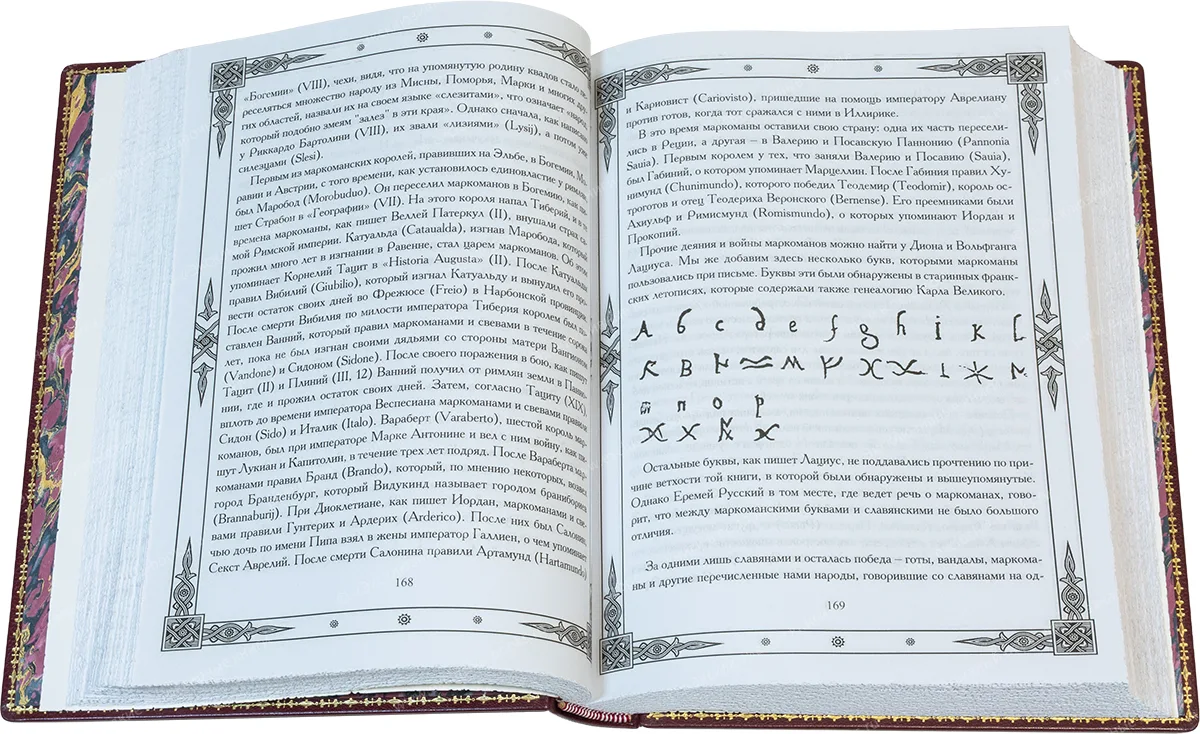 «Богемии» (VIII), чехи, видя, что на упомянутую родину квадов стало пе-
реселяться множество народу из Мисны, Поморья, Марки и многих дру-
гих областей, назвали их на своем языке «слезитами», что означает «народ,
который подобно змеям "залез" в эти края». Однако сначала, как написано
у Риккардо Бартолини (VIII), их звали «лизиями» (Lysij), а потом уже
силезцами (Slesi).
Первым из маркоманских королей, правивших на Эльбе, в Богемии, Мо-
равии и Австрии, с того времени, как установилось единовластие у римлян,
был Маробод (Morobuduo). Он переселил маркоманов в Богемию, как пи-
шет Страбон в «Географии» (VII). На этого короля напал Тиберий, и в те
времена маркоманы, как пишет Веллей Патеркул (II), внушали страх са-
мой Римской империи. Катуальда (Cataualda), изгнав Маробода, который
прожил много лет в изгнании в Равенне, стал царем маркоманов. Об этом
упоминает Корнелий Тацит в «Historia Augusta» (II). После Катуальды
правил Вибилий (Giubilio), который изгнал Катуальду и вынудил его про-
вести остаток своих дней во Фрежюсе (Freio) в Нарбонской провинции.
После смерти Вибилия по милости императора Тиберия королем был по-
ставлен Ванний, который правил маркоманами и свевами в течение сорока
лет, пока не был изгнан своими дядьями со стороны матери Вангионом
(Vandone) и Сидоном (Sidone). После своего поражения в бою, как пишут
Тацит (II) и Плиний (III, 12) Ванний получил от римлян земли в Панно-
нии, где и прожил остаток своих дней. Затем, согласно Тациту (XIX),
вплоть до времени императора Веспесиана маркоманами и свевами правили
Сидон (Sido) и Италик (Italo). Вараберт (Varaberto), шестой король мар-
команов, был при императоре Марке Антонине и вел с ним войну, как пи-
шут Лукиан и Капитолин, в течение трех лет подряд. После Вараберта мар-
команами правил Бранд (Brando), который, по мнению некоторых, возвел
город Бранденбург, который Видукинд называет городом браниборцев
(Brannaburij). При Диоклетиане, как пишет Иордан, маркоманами и све-
вами правили Гунтерих и Ардерих (Arderico). После них был Салонин,
чью дочь по имени Пипа взял в жены император Галлиен, о чем упоминает
Секст Аврелий. После смерти Салонина правили Артамунд (Hartamundo)
168
и Кариовист (Cariovisto), пришедшие на помощь императору Аврелиану
против готов, когда тот сражался с ними в Иллирике.
В это время маркоманы оставили свою страну: одна их часть пересели-
лись в Реции, а другая – в Валерию и Посавскую Паннонию (Pannonia
Sauia). Первым королем у тех, что заняли Валерию и Посавию (Sauia),
был Габиний, о котором упоминает Марцеллин. После Габиния правил Ху-
нимунд (Chunimundo), которого победил Теодемир (Teodomir), король ос-
троготов и отец Теодериха Веронского (Bernense). Его преемниками были
Ахиульф и Римисмунд (Romismundo), о которых упоминают Иордан и
Прокопий.
Прочие деяния и войны маркоманов можно найти у Диона и Вольфганга
Лациуса. Мы же добавим здесь несколько букв, которыми маркоманы
пользовались при письме. Буквы эти были обнаружены в старинных франк-
ских летописях, которые содержали также генеалогию Карла Великого.
A b c d e f g h i k l
m n o p
Остальные буквы, как пишет Лациус, не поддавались прочтению по при-
чине ветхости той книги, в которой были обнаружены и вышеупомянутые.
Однако Еремей Русский в том месте, где ведет речь о маркоманах, гово-
рит, что между маркоманскими буквами и славянскими не было большого
отличия.
За одними лишь славянами и осталась победа – готы, вандалы, маркома-
ны и другие перечисленные нами народы, говорившие со славянами на од-
169